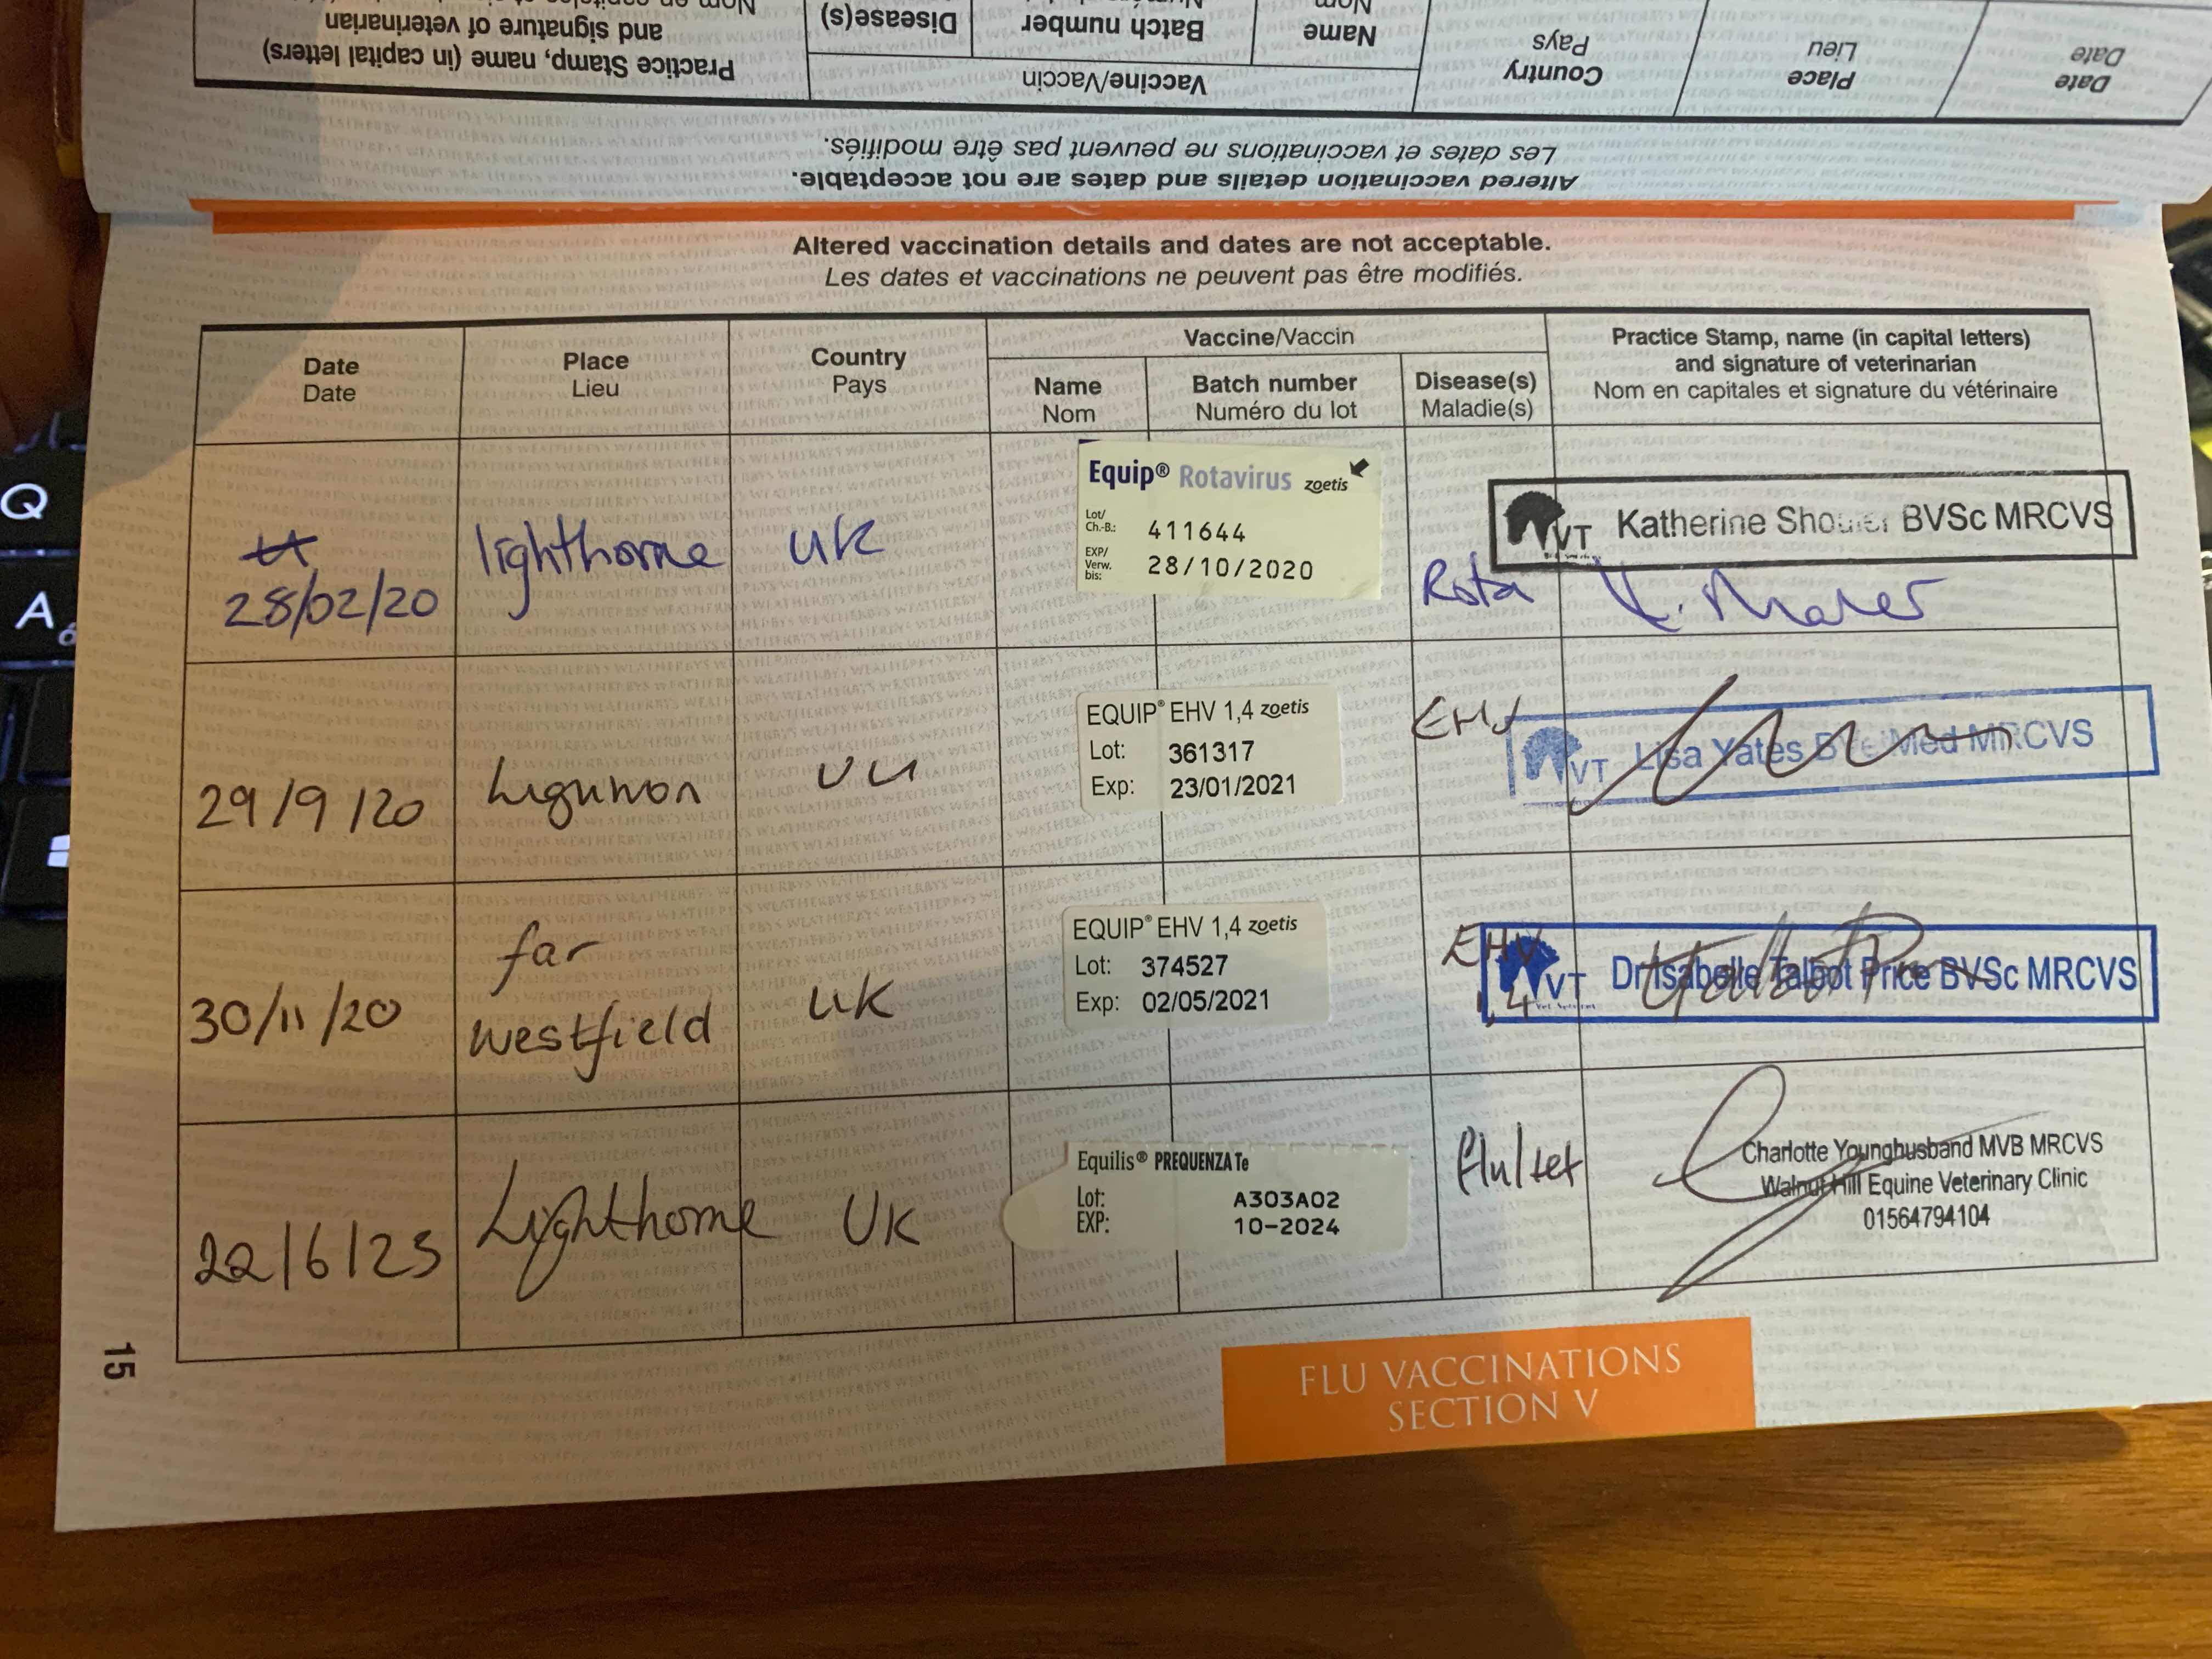 Practice Stamp, name (in capital letters)
and signature of veterinarian
Vaccine/Vaccin
Disease(s)
Batch number
Name
Nom
Country
Pays
Place
Lieu
Date
Date
Altered vaccination details and dates are not acceptable.
Les dates et vaccinations ne peuvent pas être modifiés.
Altered vaccination details and dates are not acceptable.
Les dates et vaccinations ne peuvent pas être modifiés.
Date
Date
Place
Lieu
Country
Pays
Vaccine/Vaccin
Name
Nom
Batch number
Numéro du lot
Disease(s)
Maladie(s)
Practice Stamp, name (in capital letters)
and signature of veterinarian
Nom en capitales et signature du vétérinaire
28/02/20
lighthorne
UK
Equip® Rotavirus zoetis
Lot/
Ch.-B.: 411644
EXP/
Verw.
bis: 28/10/2020
Rota
VT Katherine Shouler BVSc MRCVS
29/9/20
EQUIP® EHV 1,4 zoetis
Lot: 361317
Exp: 23/01/2021
EHV
VT Lisa Yates BVetMed MRCVS
30/11/20
far
westfield
UK
EQUIP® EHV 1,4 zoetis
Lot: 374527
Exp: 02/05/2021
EHV
1,4
VT Dr Isabelle Talbot Price BVSc MRCVS
22/6/23
Lighthorne
UK
Equilis® PREQUENZA Te
Lot: A303A02
EXP: 10-2024
flu/tet
Charlotte Younghusband MVB MRCVS
Walnut Hill Equine Veterinary Clinic
01564794104
15
FLU VACCINATIONS
SECTION V
Q
A